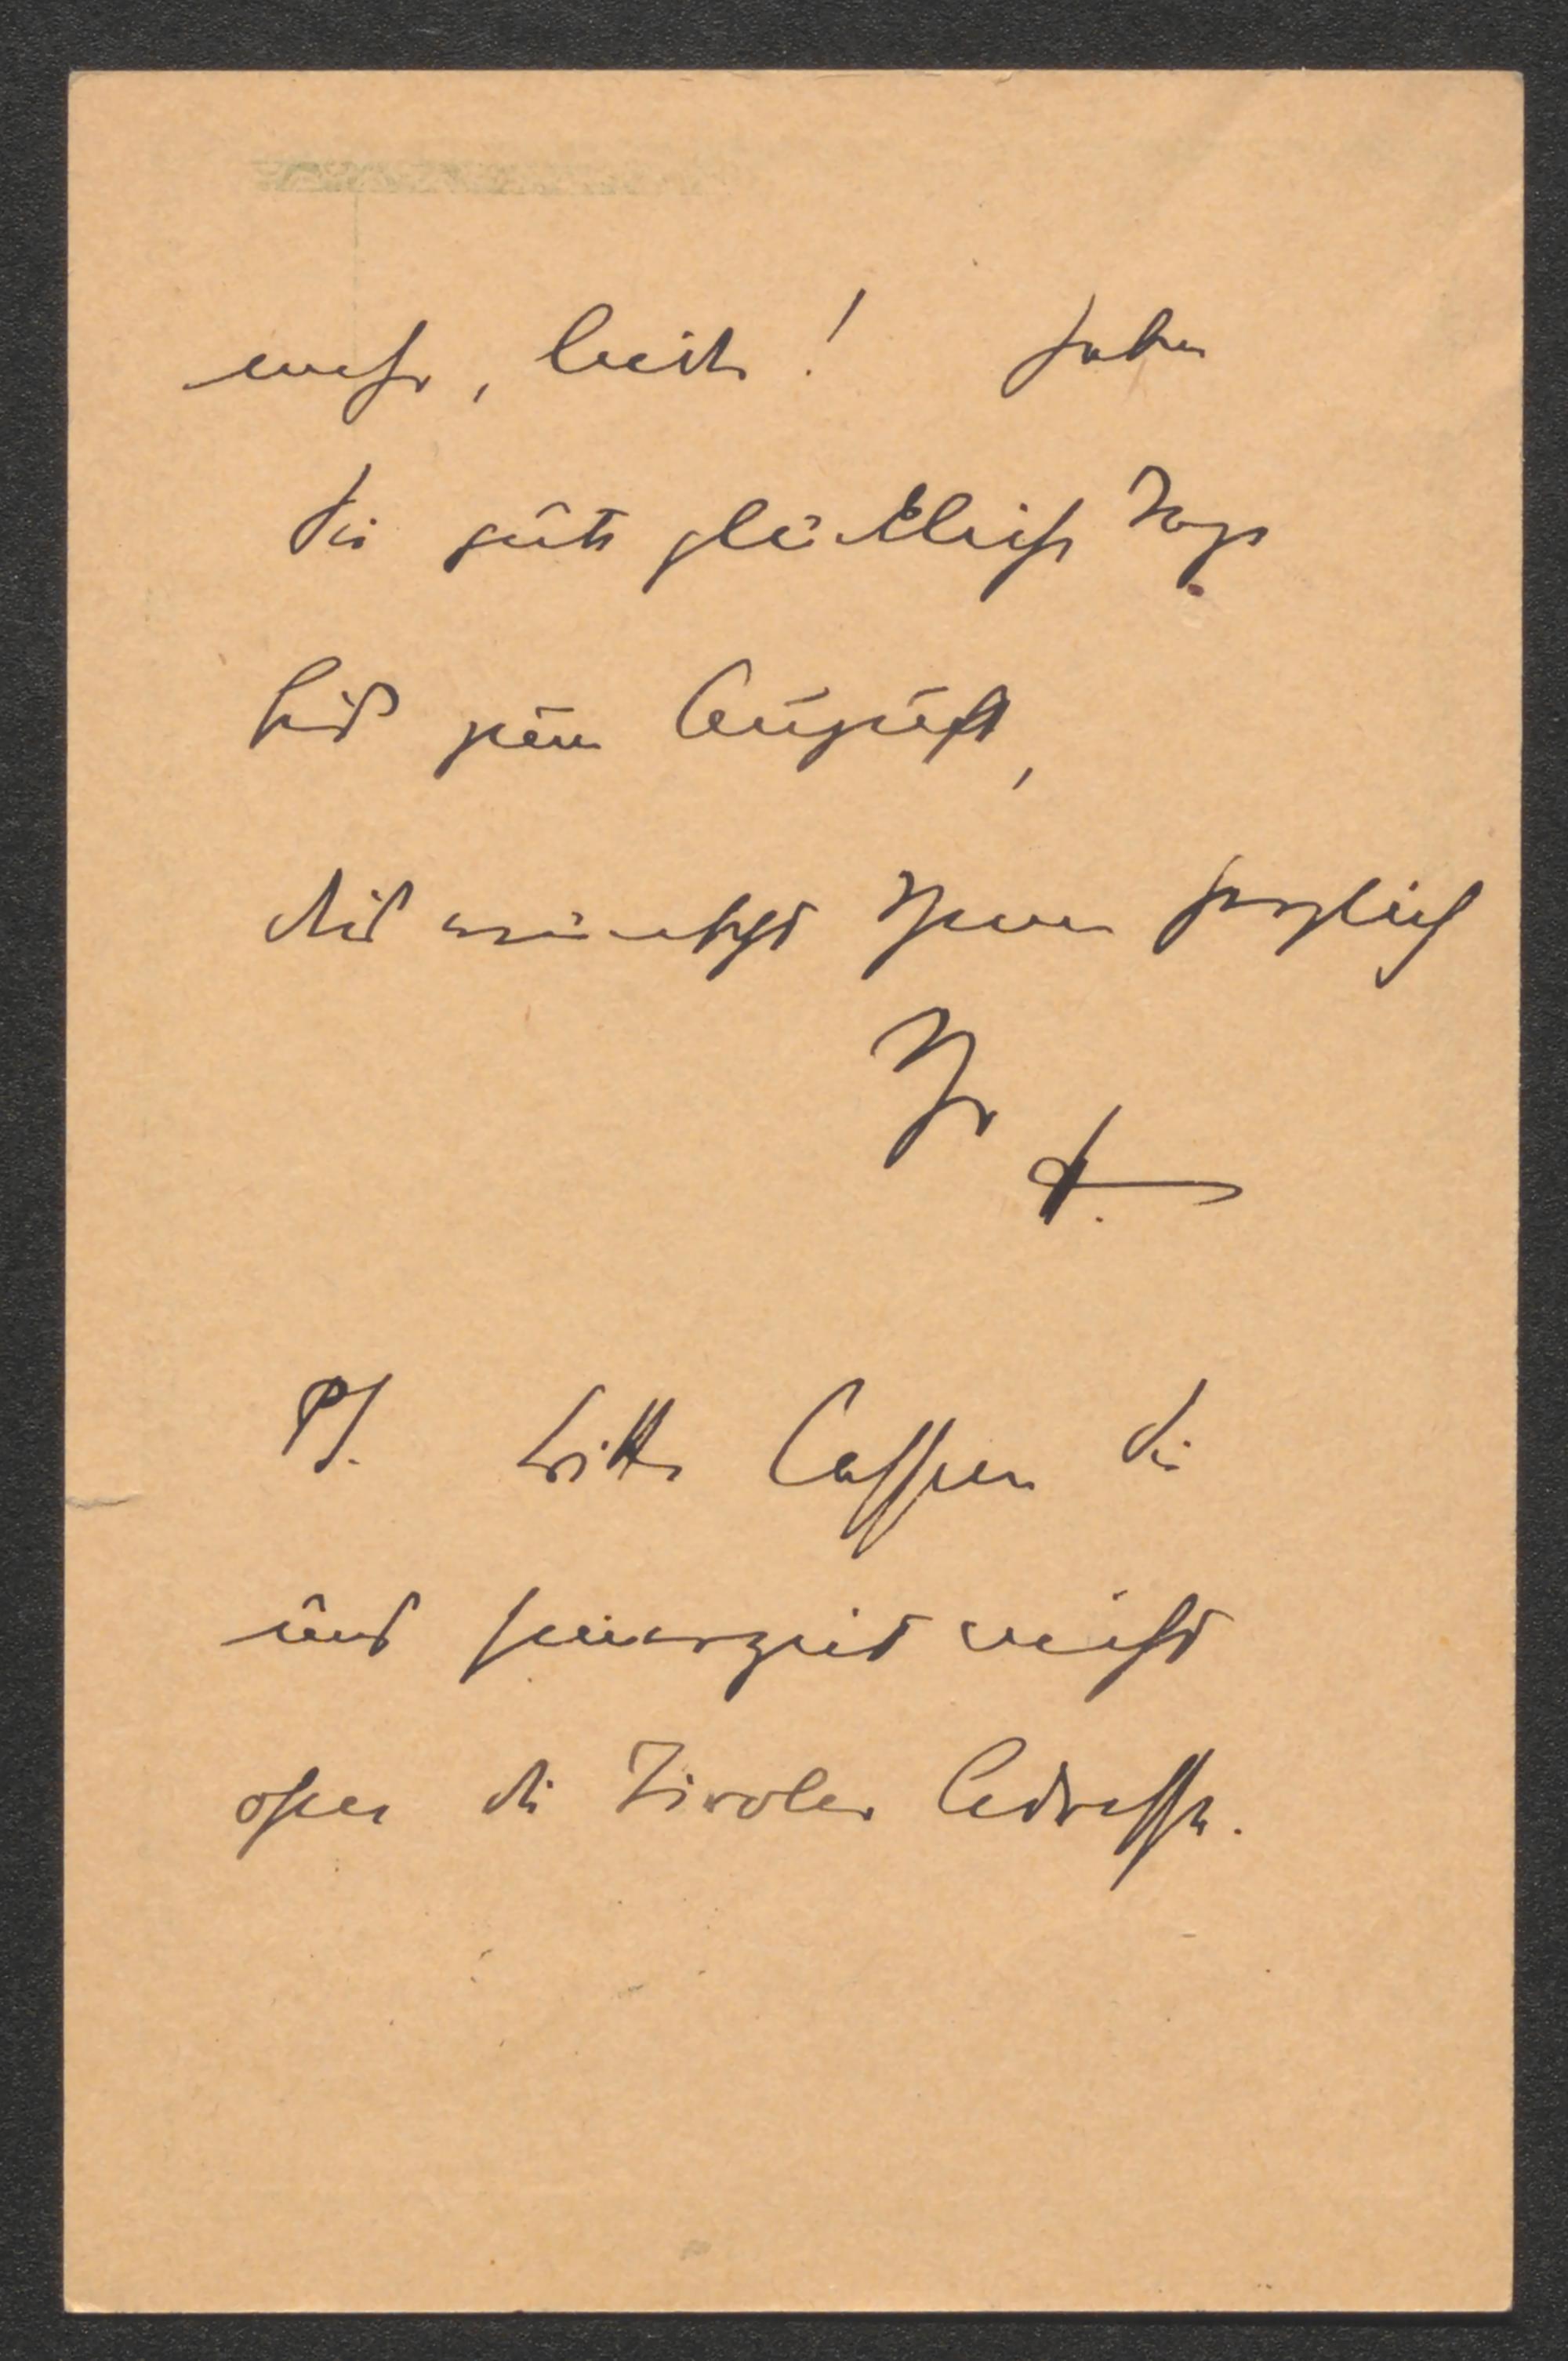 mehr, leider! Haben
Sie gute glückliche Tage
bis zum August,
das wünscht Ihnen herzlich
Ihr
A.
PS. bitte lassen Sie
uns seinerzeit nicht
ohne die Tiroler Adresse.